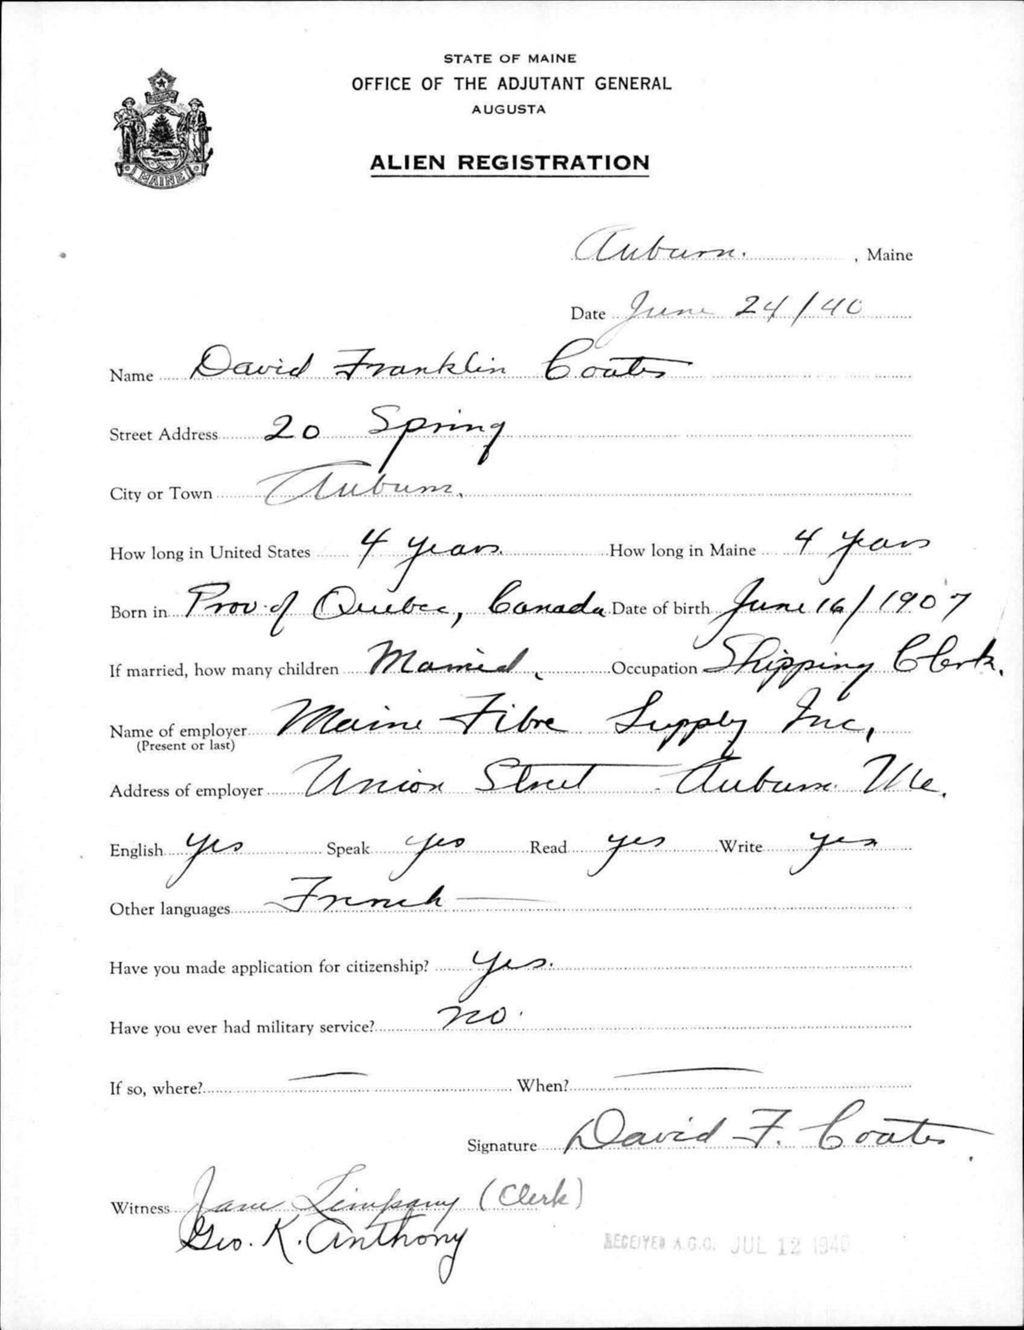 STATE OF MAINE
OFFICE OF THE ADJUTANT GENERAL
AUGUSTA
ALIEN REGISTRATION
MAINE
Auburn. , Maine
Date June 24/40
Name David Franklin Coates
Street Address 20 Spring
City or Town Auburn.
How long in United States 4 years. How long in Maine 4 years
Born in Prov. of Quebec, Canada Date of birth June 16/1907
If married, how many children Married. Occupation Shipping Clerk.
Name of employer Maine Fibre Supply Inc,
(Present or last)
Address of employer Union Street - Auburn. Me.
English yes Speak yes Read yes Write yes
Other languages French —
Have you made application for citizenship? yes.
Have you ever had military service? no.
If so, where? — When? —
Signature David F. Coates
Witness Jane Limpany (Clerk)
Geo. K. Anthony
RECEIVED A.G.O. JUL 12 1940